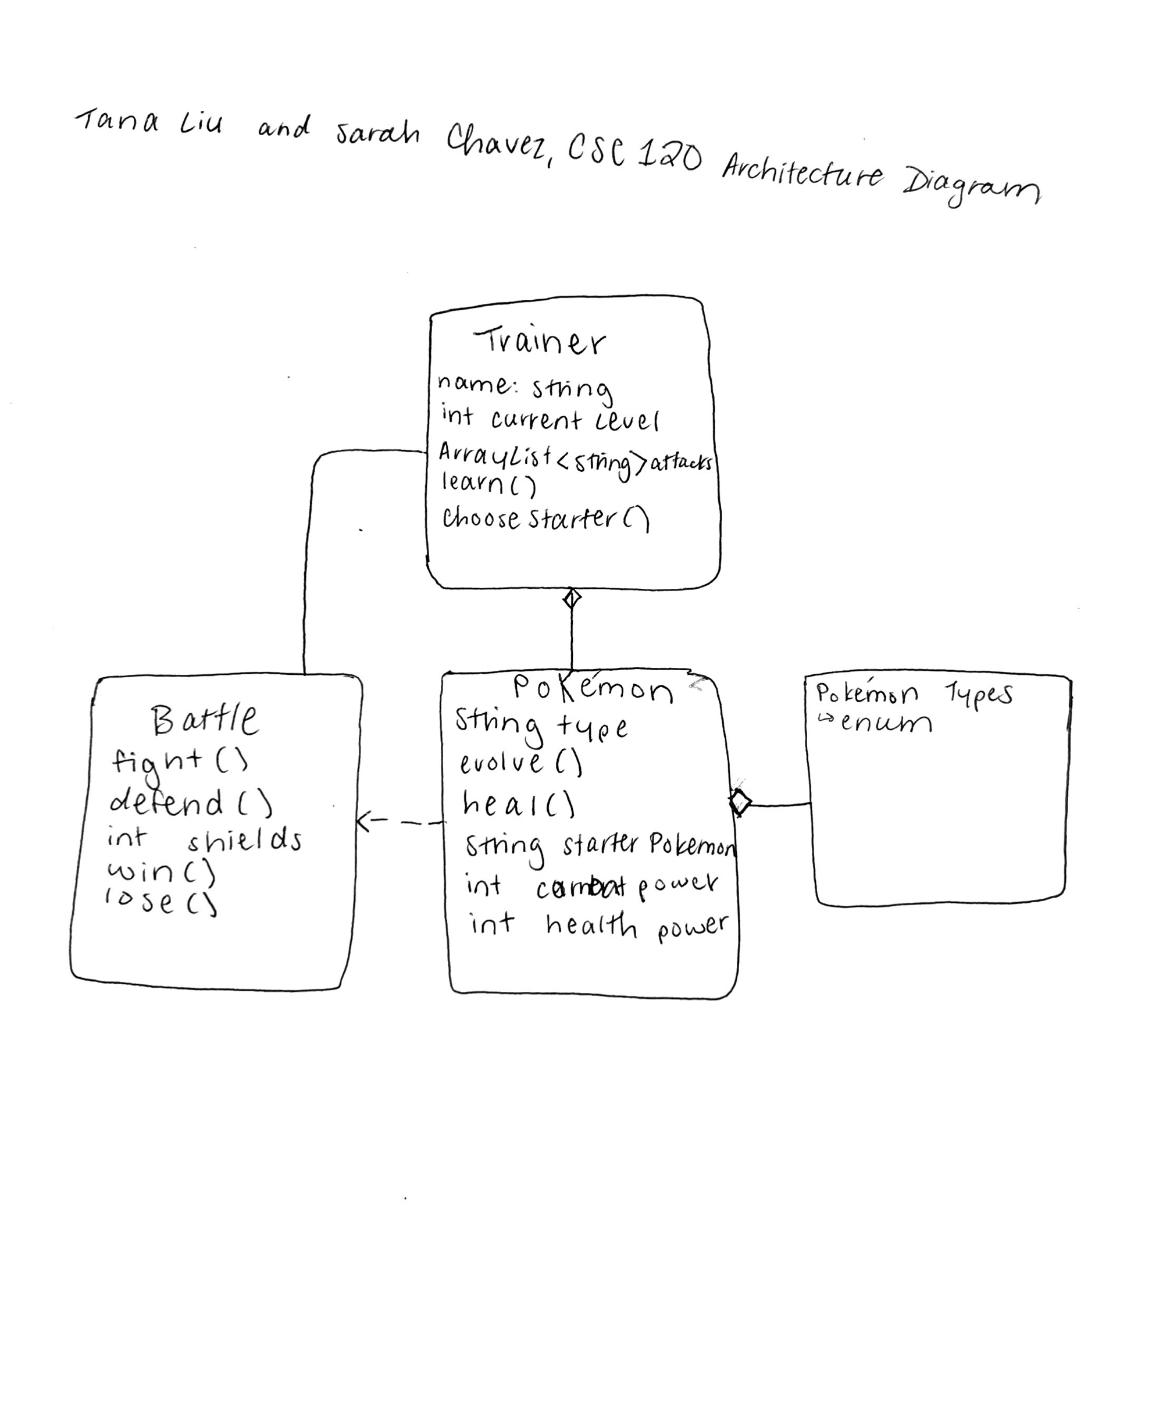 Tana Liu and Sarah Chavez, CSC 120 Architecture Diagram
Trainer
name: string
int current Level
ArrayList<string> attacks
learn()
choose starter()
Battle
fight()
defend()
int shields
win()
lose()
Pokémon
String type
evolve()
heal()
string starter Pokemon
int combat power
int health power
Pokémon Types
↳ enum